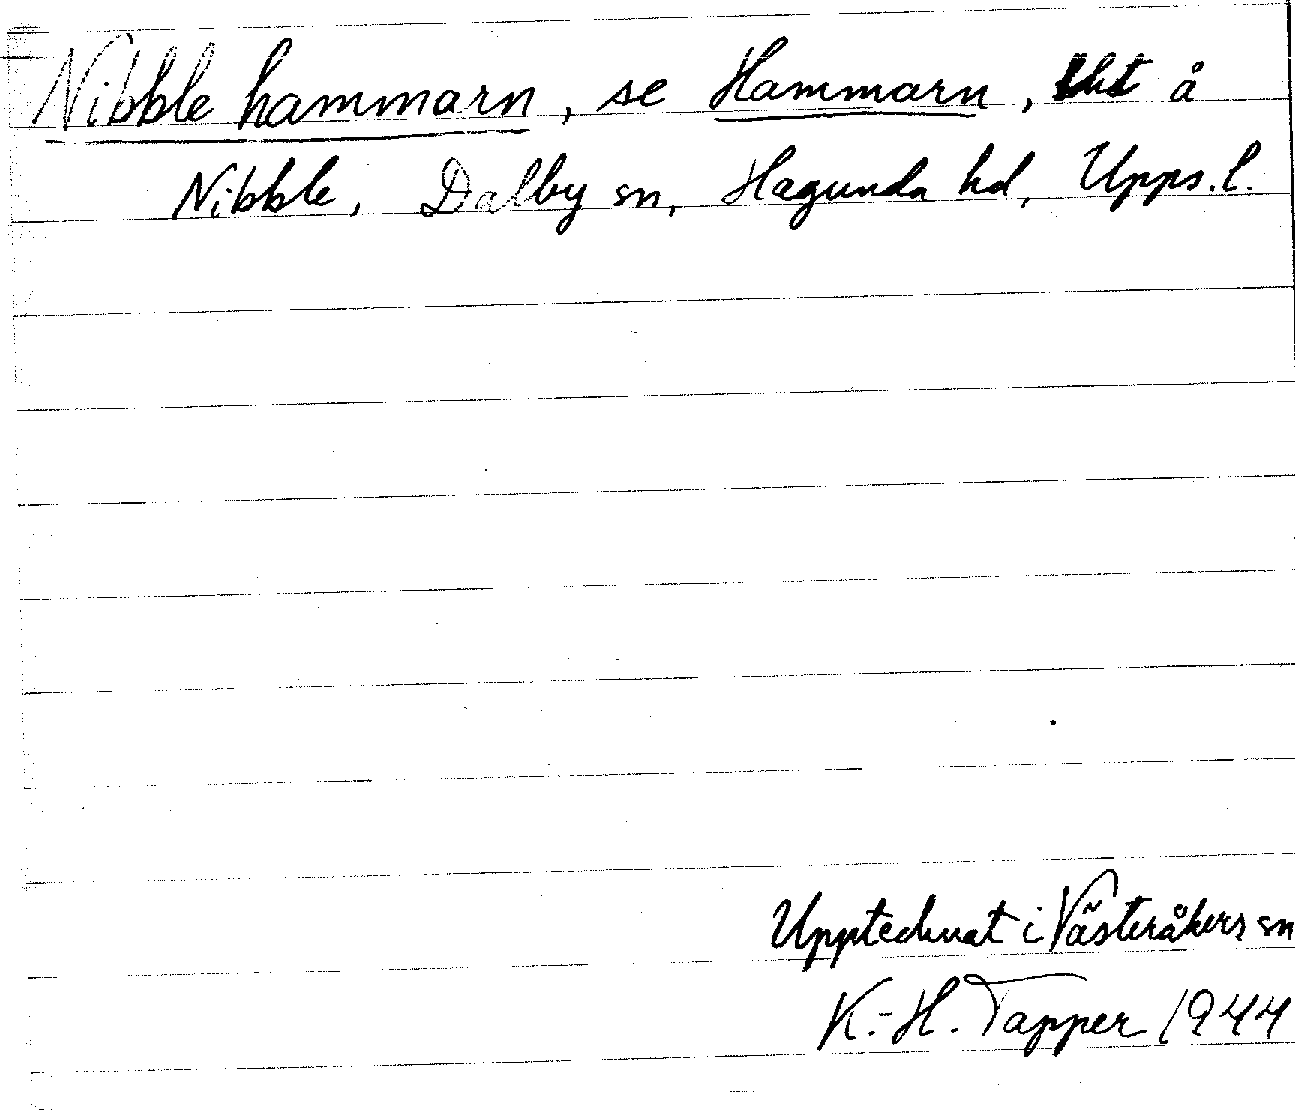 Nibble hammarn, se Hammarn, å
Nibble, Dalby sn, Hagunda hd, Upps. l.
Upptecknat i Västeråkers sn
K.-H. Tapper 1944